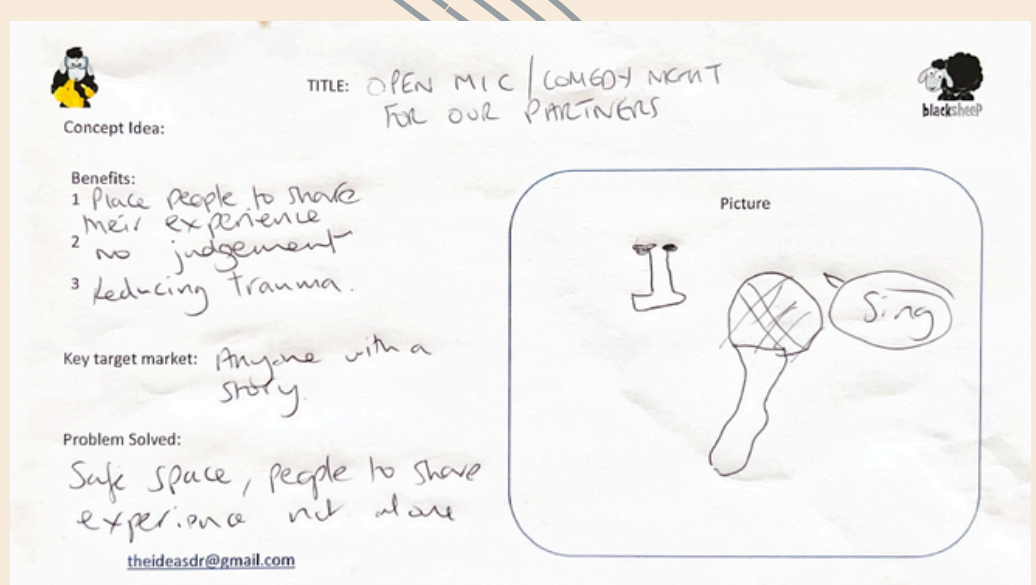 TITLE: OPEN MIC / COMEDY NIGHT
FOR OUR PARTNERS
blacksheeP
Concept Idea:
Benefits:
1 Place people to share
their experience
2 no judgement
3 Reducing trauma.
Key target market: Anyone with a
story.
Problem Solved:
Safe space, people to share
experience not alone
theideasdr@gmail.com
Picture
Sing